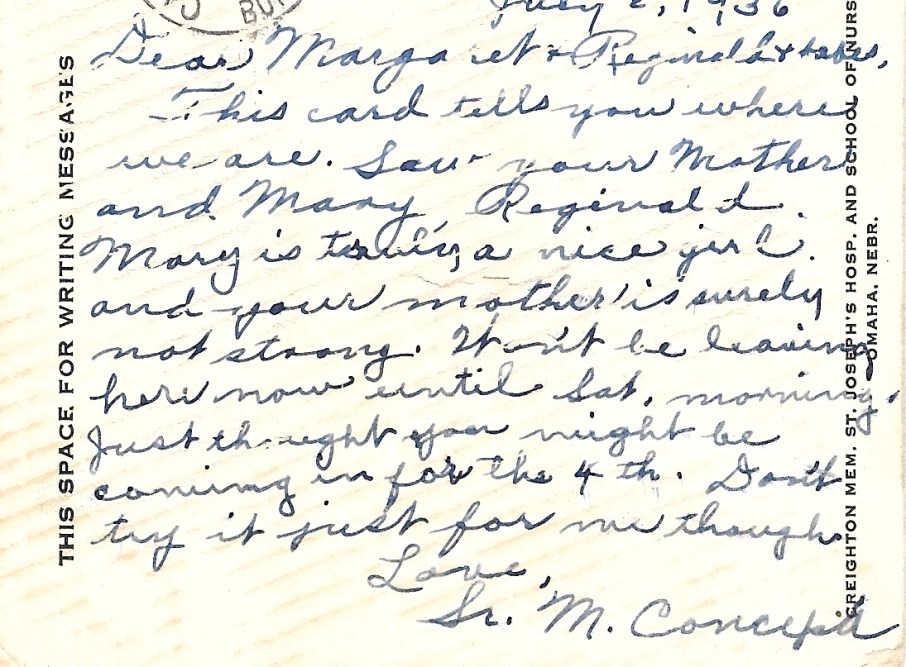 July 2, 1936
Dear Margaret & Reginald &
This card tells you where
we are. Saw your Mother
and Mary, Reginald.
Mary is truly a nice girl.
and your mother is surely
not strong. Won't be leaving
here now until Sat. morning.
Just thought you might be
coming in for the 4th. Don't
try it just for me though.
Love,
Sr. M.
THIS SPACE FOR WRITING MESSAGES
CREIGHTON MEM. ST. JOSEPH'S HOSP. AND SCHOOL OF NURS
OMAHA, NEBR.